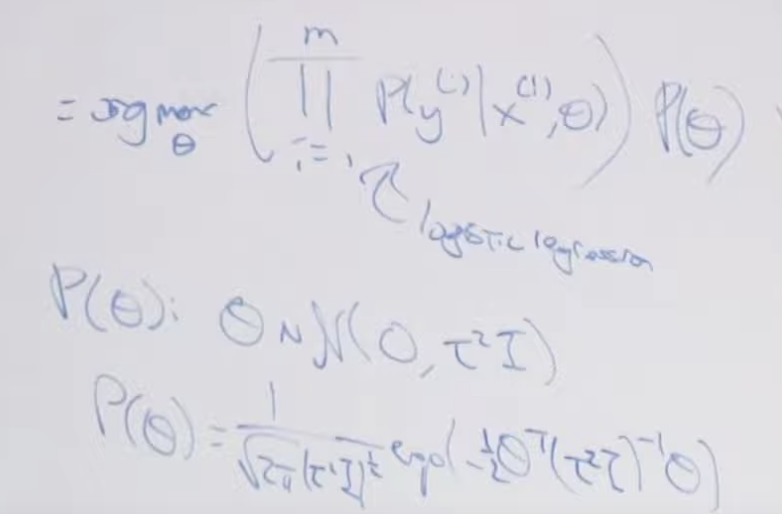 = arg max θ ( m ∏ i=1 P(y⁽ⁱ⁾|x⁽ⁱ⁾,θ) ) P(θ)
logistic regression
P(θ): θ ~ N(0, τ²I)
P(θ) = 1 / √2π |τ²I|^½ exp(-½θᵀ(τ²I)⁻¹θ)